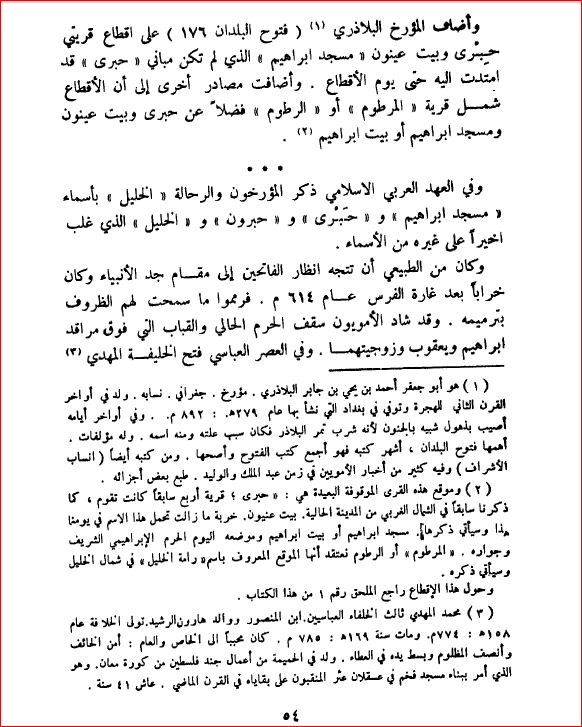 وأضاف المؤرخ البلاذري (١) ( فتوح البلدان ١٧٦ ) على اقطاع قريتي
حبْرى وبيت عينون « مسجد ابراهيم » الذي لم تكن مباني « حبرى » قد
امتدت اليه حتى يوم الأقطاع . وأضافت مصادر أخرى إلى أن الأقطاع
شمل قرية « المرطوم » أو « الرطوم » فضلاً عن حبرى وبيت عينون
ومسجد ابراهيم أو بيت ابراهيم (٢) .
* * *
وفي العهد العربي الاسلامي ذكر المؤرخون والرحالة « الخليل » بأسماء
« مسجد ابراهيم » و « حَبْرى » و « حبرون » و « الخليل » الذي غلب
اخيراً على غيره من الأسماء .
وكان من الطبيعي أن تتجه انظار الفاتحين إلى مقام جد الأنبياء وكان
خراباً بعد غارة الفرس عام ٦١٤ م . فرمموا ما سمحت لهم الظروف
بترميمه . وقد شاد الأمويون سقف الحرم الحالي والقباب التي فوق مراقد
ابراهيم ويعقوب وزوجيتهما . وفي العصر العباسي فتح الخليفة المهدي (٣)
( ١ ) هو أبو جعفر أحمد بن يحي بن جابر البلاذري . مؤرخ . جغرافي . نسابه . ولد في أواخر
القرن الثاني للهجرة وتوفي في بنداد التي نشأ بها عام ٢٧٩هـ : ٨٩٢ م . وفي أواخر أيامه
أصيب بذهول شبيه بالجنون لأنه شرب تمر البلاذر فكان سبب علته ومنه اسمه . وله مؤلفات .
أهمها فتوح البلدان ، أشهر كتبه فهو أجمع كتب الفتوح وأصحها . ومن كتبه أيضاً ( انساب
الأشراف ) وفيه كثير من أخبار الأمويين في زمن عبد الملك والوليد . طبع بعض أجزائه .
( ٢ ) وموقع هذه القرى الموقوفة البعيدة هي : « حبرى ؛ قرية أربع سابقاً كانت تقوم ، كما
ذكرنا سابقاً في الشمال الغربي من المدينة الحالية. بيت عنيون. خربة ما زالت تحمل هذا الاسم في يومنا
هذا وسيأتي ذكرها. مسجد ابراهيم أو بيت ابراهيم وموضعه اليوم الحرم الإبراهيمي الشريف
وجواره . « المرطوم » أو الرطوم نعتقد أنها الموقع المعروف باسم« رامة الخليل » في شمال الخليل
وسيأتي ذكره .
وحول هذا الإقطاع راجع الملحق رقم ١ من هذا الكتاب .
( ٣ ) محمد المهدي ثالث الخلفاء العباسيين.ابن المنصور ووالد هارون الرشيد.تولى الخلافة عام
١٥٨هـ : ٧٧٤م. ومات سنة ١٦٩هـ : ٧٨٥ م . كان محبباً الى الخاص والعام : أمن الخائف
وأنصف المظلوم وبسط يده في العطاء . ولد في الحميمة من أعمال جند فلسطين من كورة معان. وهو
الذي أمر ببناء مسجد فخم في عسقلان عثر المنقبون على بقاياه في القرن الماضي . عاش ٤١ سنة .
٥٤